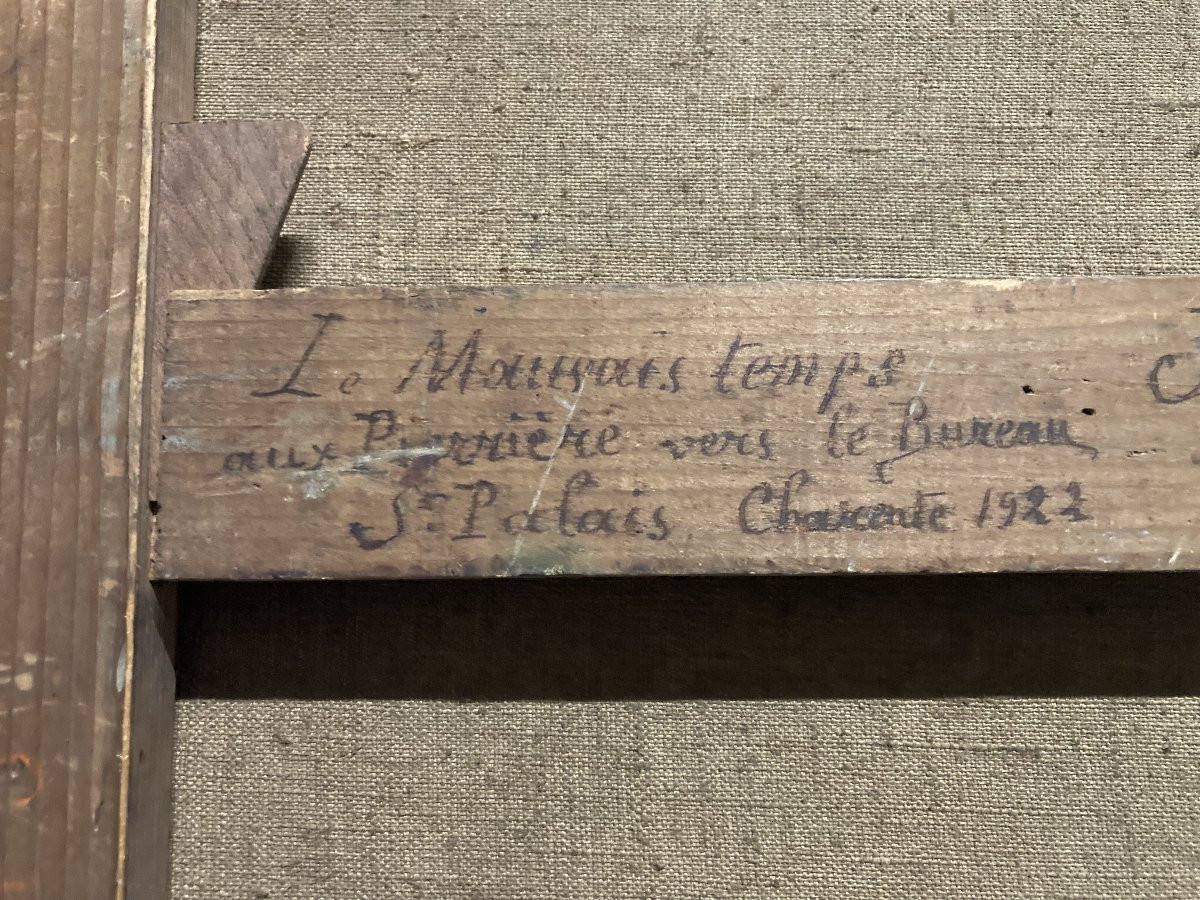 Le Mauvais temps
aux Pierrière vers le Bureau
St Palais Charente 1922